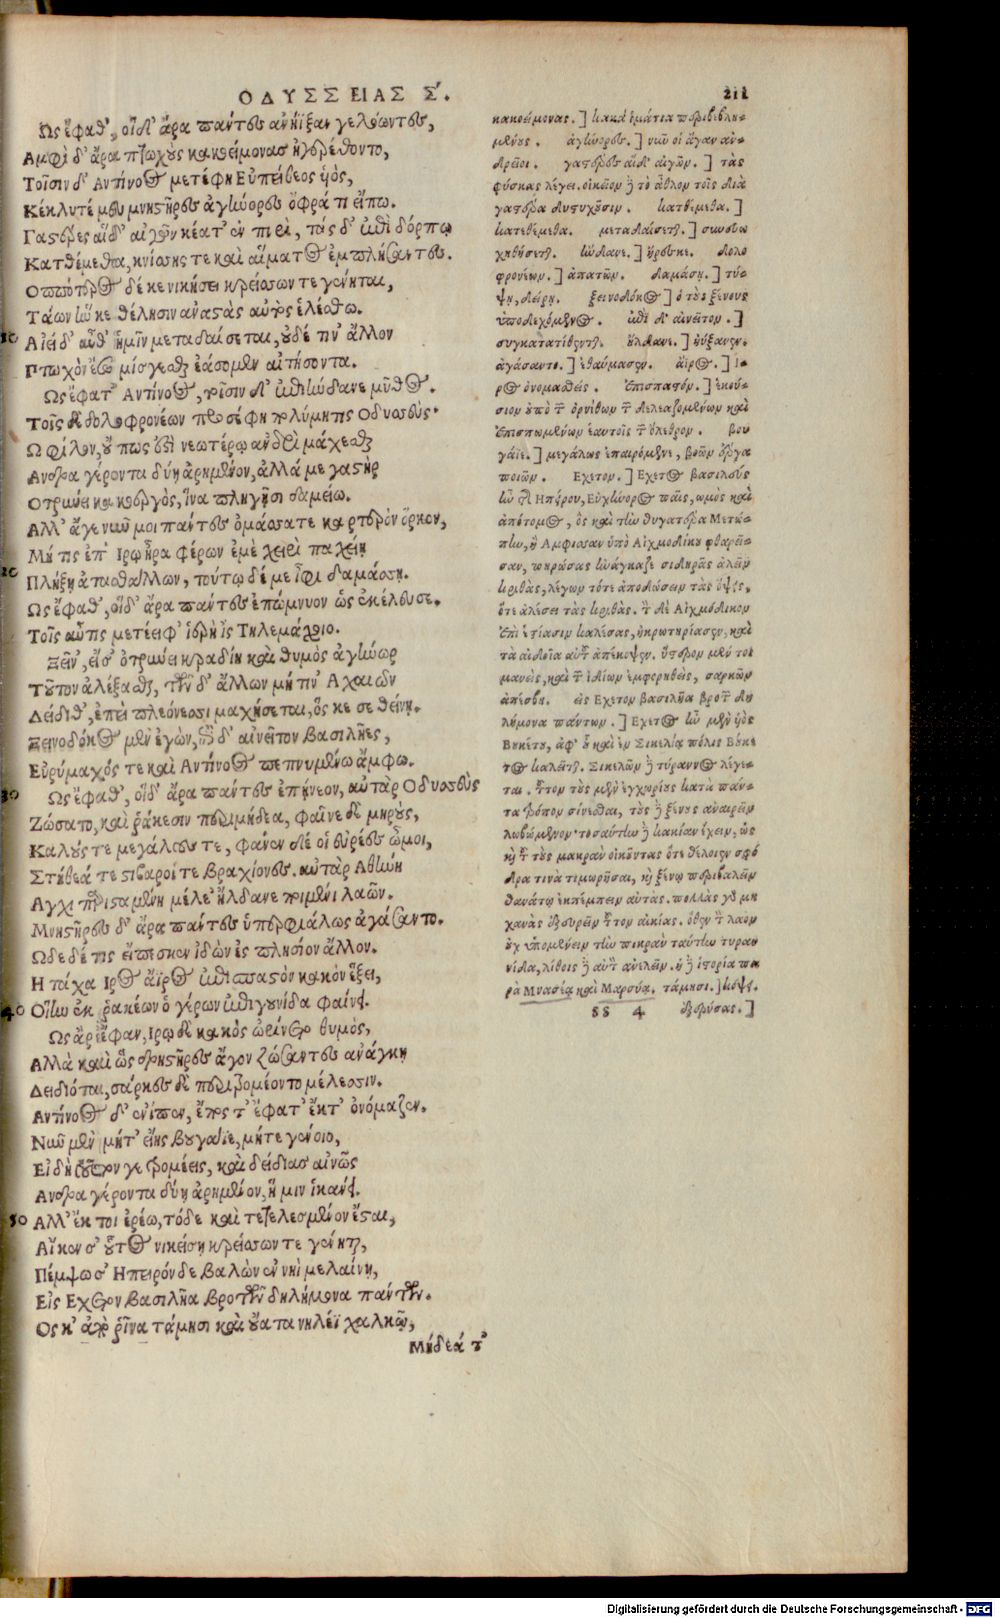 ΟΔΥΣΣΕΙΑΣ Σ.
211
Ως ἔφαθ', οἱ δ' ἄρα πάντες ἀνήϊξαν γελόωντες,
Αμφὶ δ' ἄρα πτωχοὺς κακοείμονας ἠγερέθοντο,
Τοῖσιν δ' Αντίνοος μετέφη Εὐπείθεος υἱός,
Κέκλυτέ μευ μνηστῆρες ἀγήνορες ὄφρά τι εἴπω.
Γαστέρες αἵδ' αἰγῶν κέατ' ἐν πυρὶ, τάς δ' ἐπὶ δόρπῳ
Κατθέμεθα, κνίσσης τε καὶ αἵματος ἐμπλήσαντες.
Οππότερος δέ κε νικήσει κρείσσων τε γένηται,
Τάων ἥν κε θέλησιν ἀναστὰς αὐτὸς ἑλέσθω.
Αἰεὶ δ' αὖθ' ἡμῖν μεταδαίσεται, οὐδέ τιν' ἄλλον
10
Πτωχὸν ἔσω μίσγεσθαι ἐάσομεν αἰτήσοντα.
Ως ἔφατ' Αντίνοος, τοῖσιν δ' ἐπιήνδανε μῦθος.
Τοῖς δὲ δολοφρονέων προσέφη πολύμητις Οδυσσεύς·
Ω φίλοι, οὔ πως ἔστι νεωτέρῳ ἀνδρὶ μάχεσθαι
Ανδρα γέροντα δύῃ ἀρημένον, ἀλλά με γαστὴρ
Οτρύνει κακοεργὸς, ἵνα πληγῇσι δαμείω.
Αλλ' ἄγε νῦν μοι πάντες ὀμόσσατε καρτερὸν ὅρκον,
Μή τις ἐπ' Ιρῳ ἦρα φέρων ἐμὲ χειρὶ παχείῃ
20
Πλήξῃ ἀτασθάλλων, τούτῳ δέ με ἶφι δαμάσσῃ.
Ως ἔφαθ', οἱ δ' ἄρα πάντες ἐπώμνυον ὡς ἐκέλευσε.
Τοῖς αὖτις μετέειφ' ἱερὴ ἲς Τηλεμάχοιο.
Ξεῖν', εἴ σ' ὀτρύνει κραδίη καὶ θυμὸς ἀγήνωρ
Τοῦτον ἀλέξασθαι, τῶν δ' ἄλλων μή τιν' Αχαιῶν
Δείδιθ', ἐπεὶ πλεόνεσσι μαχήσεται, ὅς κε σε θείνῃ.
Ξεινοδόκος μὲν ἐγών, ἐπὶ δ' αἰνεῖτον βασιλῆες,
Εὐρύμαχός τε καὶ Αντίνοος πεπνυμένω ἄμφω.
30
Ως ἔφαθ', οἱ δ' ἄρα πάντες ἐπῄνεον, αὐτὰρ Οδυσσεὺς
Ζώσατο, καὶ ῥάκεσιν περὶ μήδεα, φαῖνε δὲ μηροὺς,
Καλούς τε μεγάλους τε, φάνεν δέ οἱ εὐρέες ὦμοι,
Στήθεά τε στιβαροί τε βραχίονες. αὐτὰρ Αθήνη
Αγχι παρισταμένη μέλε' ἤλδανε ποιμένι λαῶν.
Μνηστῆρες δ' ἄρα πάντες ὑπερφιάλως ἀγάσαντο.
Ωδε δέ τις εἴπεσκεν ἰδὼν ἐς πλησίον ἄλλον.
Η τάχα Ιρος ἄϊρος ἐπίσπαστον κακὸν ἕξει,
40
Οἵην ἐκ ῥακέων ὁ γέρων ἐπιγουνίδα φαίνει.
Ως ἄρ ἔφαν, Ιρῳ δὲ κακὸς ὠρίνετο θυμὸς,
Αλλὰ καὶ ὣς δρηστῆρες ἄγον ζώσαντες ἀνάγκῃ
Δειδιότα, σάρκες δὲ περιτρομέοντο μέλεσσιν.
Αντίνοος δ' ἐνίπεν, ἔπος τ' ἔφατ' ἔκ τ' ὀνόμαζεν.
Νῦν μὲν μήτ' εἴης βουγάϊε, μήτε γένοιο,
Εἰ δὴ τοῦτόν γε τρομέεις, καὶ δείδιας αἰνῶς
Ανδρα γέροντα δύῃ ἀρημένον, ἥ μιν ἱκάνει.
50
Αλλ' ἔκ τοι ἐρέω, τόδε καὶ τετελεσμένον ἔσται,
Αἴ κεν σ' οὗτος νικήσῃ κρείσσων τε γένηται,
Πέμψω σ' Ηπειρόνδε βαλὼν ἐν νηῒ μελαίνῃ,
Εἰς Εχετον βασιλῆα βροτῶν δηλήμονα πάντων.
Ος κ' ἀπὸ ῥῖνα τάμησι καὶ οὔατα νηλέϊ χαλκῷ,
Μήδεά τ'
κακοείμονας.] κακὰ ἱμάτια περιβεβλη-
μένους. ἀγήνορες.] νῦν οἱ ἄγαν ἀν-
δρεῖοι. γαστέρες αἵδ' αἰγῶν.] τὰς
φύσκας λέγει. οἰκεῖον δὲ τὸ ἆθλον τοῖς διὰ
γαστέρα δυστυχοῦσιν. κατθέμεθα.]
κατεθέμεθα. μεταδαίσεται.] συνευω
χηθήσεται. ἥνδανε.] ἤρεσκε. δολο
φρονέων.] ἀπατῶν. δαμάσῃ.] τύ-
ψῃ, δείρῃ. ξεινοδόκος] ὁ τοὺς ξένους
ὑποδεχόμενος. ἐπὶ δ' αἰνεῖτον.]
συγκατατίθενται. ἤλδανε.] ηὔξανεν.
ἀγάσαντο.] ἐθαύμασαν. ἄϊρος.] Ι-
ρος ὀνομασθείς. ἐπίσπαστον.] ἑκού-
σιον ἀπὸ τῶν ὀρνίθων τῶν δελεαζομένων καὶ
ἐπισπωμένων ἑαυτοῖς τὸν ὄλεθρον. βου
γάϊε.] μεγάλως ἐπαιρόμενε, βοῶν ἔργα
ποιῶν. Εχετον.] Εχετος βασιλεὺς
ἦν τῆς Ηπείρου, Εὐχήνορος παῖς, ὠμὸς καὶ
ἀπότομος, ὃς καὶ τὴν θυγατέρα Μετώ-
πην, ἢ Αμφισσαν ὑπὸ Αἰχμοδίκου φθαρεῖ-
σαν, πηρώσας ἠνάγκαζε σιδηρᾶς ἀλεῖν
κριθὰς, λέγων τότε ἀποδώσειν τὰς ὄψεις,
ὅτε ἀλέσει τὰς κριθάς. τὸν δὲ Αἰχμόδικον
ἐπὶ ἑστίασιν καλέσας, ἠκρωτηρίασεν, καὶ
τὰ αἰδοῖα αὐτοῦ ἀπέκοψεν. ὕστερον μέντοι
μανεὶς, καὶ τῶν ἰδίων ἐμφορηθεὶς, σαρκῶν
ἀπέσβη. εἰς Εχετον βασιλῆα βροτῶν δη
λήμονα πάντων.] Εχετος ἦν μὲν υἱὸς
Βουκέτου, ἀφ' οὗ καὶ ἐν Σικελίᾳ πόλις Βούκε
τος καλεῖται. Σικελῶν δὲ τύραννος λέγε-
ται. τοῦτον τοὺς μὲν ἐγχωρίους κατὰ πάν-
τα τρόπον σίνεσθαι, τοὺς δὲ ξένους ἀναιρεῖν
λωβώμενον· τοσαύτην δὲ κακίαν ἔχειν, ὡς
καὶ τοὺς μακρὰν οἰκοῦντας ὅτε θέλοιεν σφό
δρα τινὰ τιμωρῆσαι, καὶ ξένῳ περιβαλεῖν
θανάτῳ ἐκπέμπειν αὐτάς. πολλὰς γὰρ μη
χανὰς ἐξευρεῖν τοῦτον αἰκίας. ὅθεν τὸν λαὸν
οὐχ ὑπομένειν τὴν πικρὰν ταύτην τυραν
νίδα, λίθοις δὲ αὐτὸν ἀνελεῖν. ἡ δὲ ἱστορία πα
ρὰ Μνασέᾳ καὶ Μαρσύᾳ. τάμησι.] κόψει.
ss 4 ἐξερύσας.]
Digitalisierung gefördert durch die Deutsche Forschungsgemeinschaft - DFG